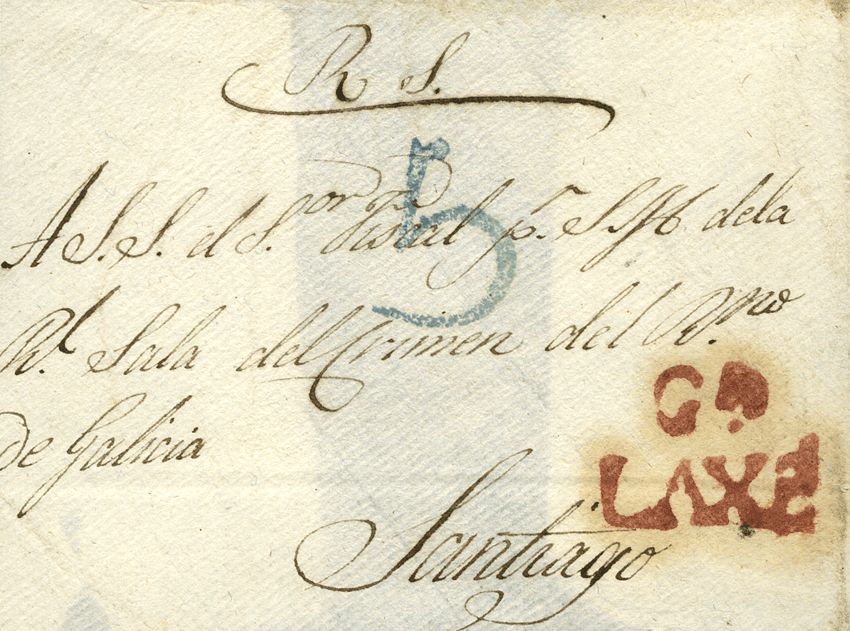 R S.
5
A S.S. el S.or Fiscal p.r S.M. dela
Rl. Sala del Crimen del R.no
de Galicia
Santiago
Gª
LAXE